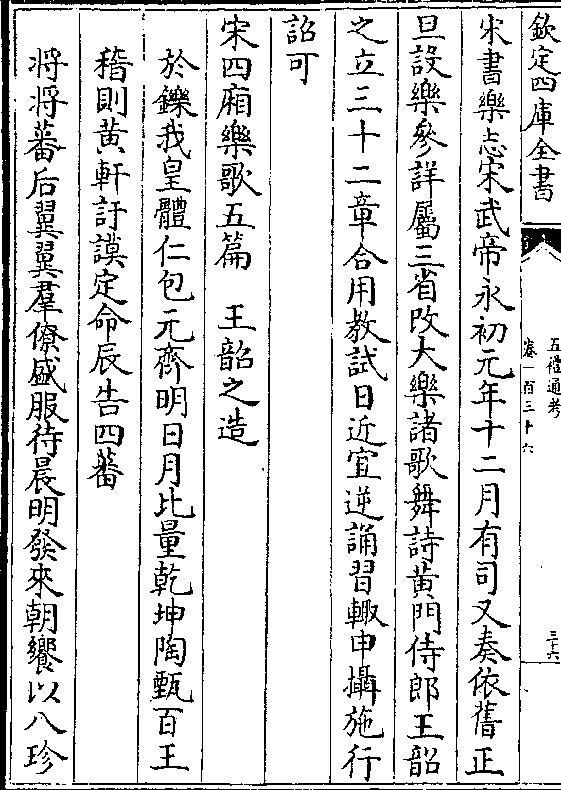 欽定四庫全書
五禮通考
卷一百三十六
三十六
宋書樂志宋武帝永初元年十二月有司又奏依舊正
旦設樂參詳屬三省改大樂諸歌舞詩黃門侍郎王韶
之立三十二章合用教試日近宜逆誦習輙申攝施行
詔可
宋四廂樂歌五篇　王韶之造
於鑠我皇體仁包元齊明日月比量乾坤陶甄百王
稽則黃軒訏謨定命辰告四蕃
將將蕃后翼翼羣僚盛服待晨明發來朝饗以八珍